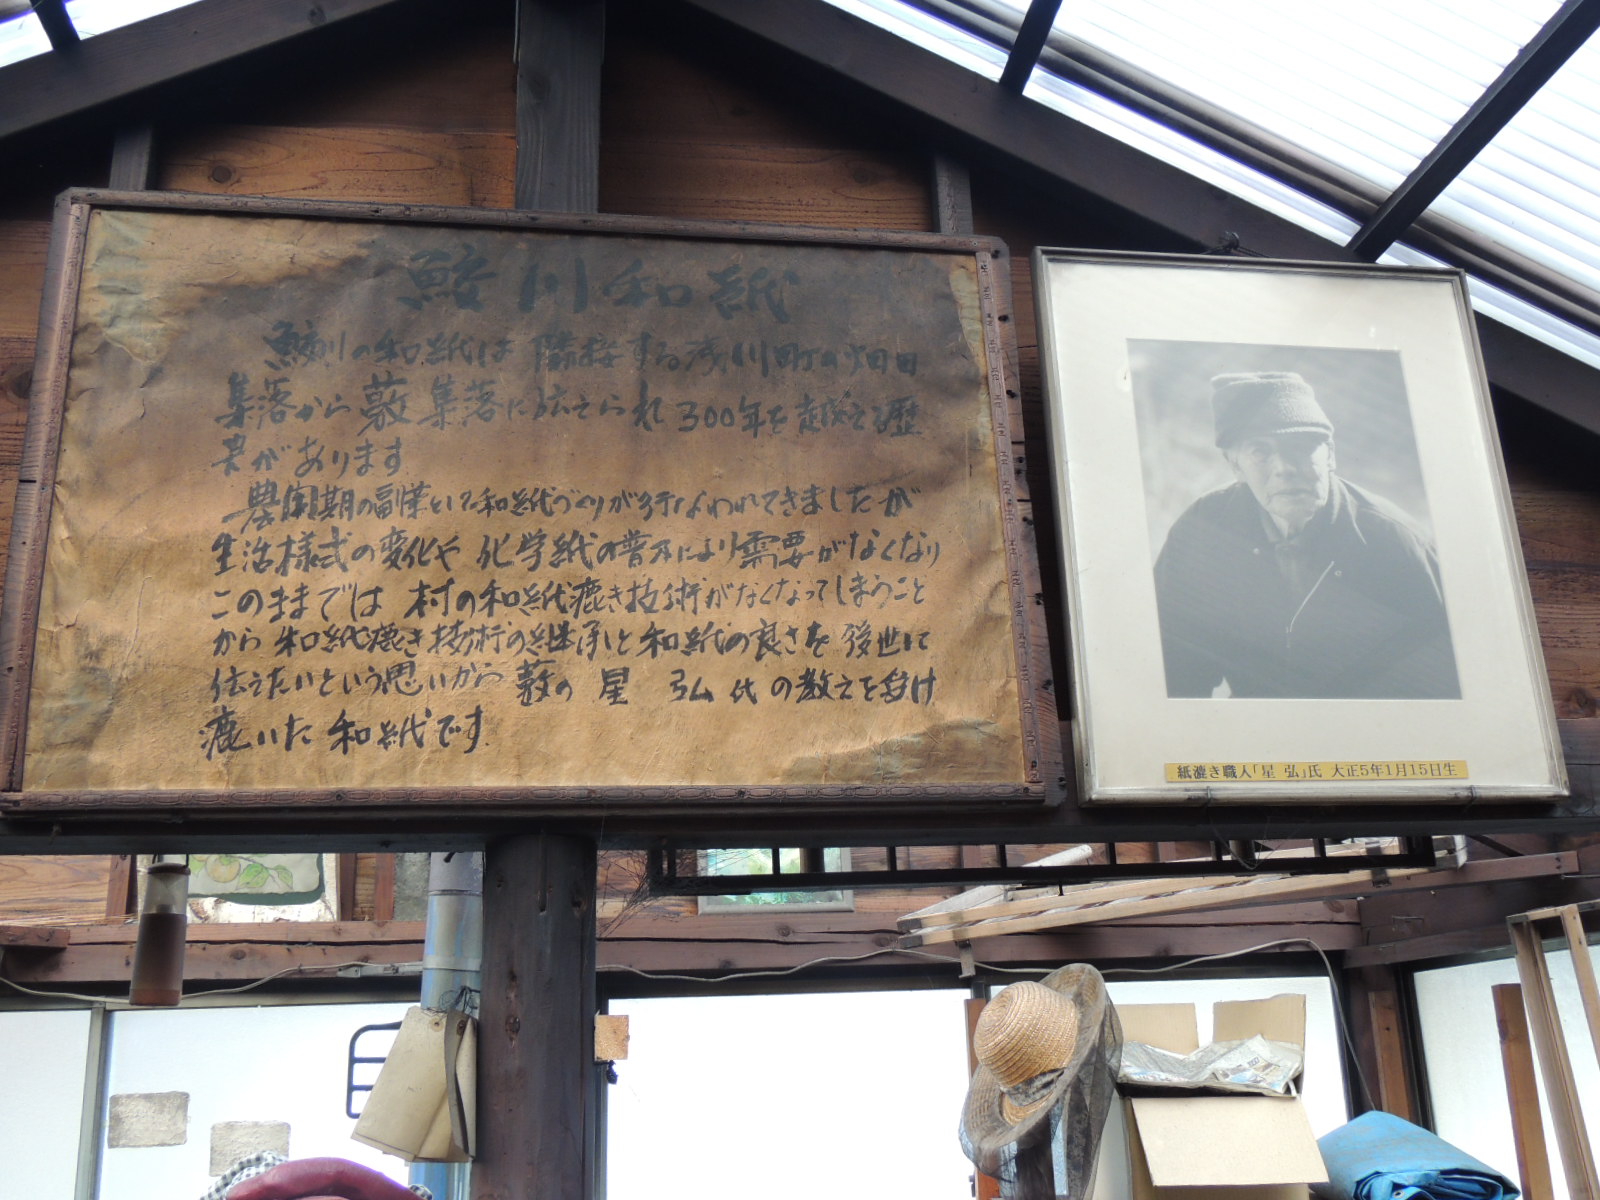 鮫川和紙
鮫川の和紙は 隣接する浅川町の畑田
集落から薮集落に伝えられ300年を越える歴
史があります
農閑期の副業として和紙づくりが行なわれてきましたが
生活様式の変化や 化学紙の普及により需要がなくなり
このままでは 村の和紙漉き技術がなくなってしまうこと
から 和紙漉き技術の継承と和紙の良さを 後世に
伝えたいという思いから 薮の 星 弘 氏の教えを受け
漉いた 和紙です
紙漉き職人「星 弘」氏 大正5年1月15日生